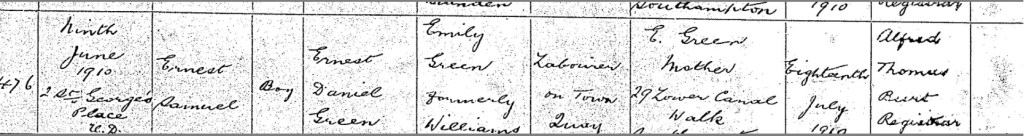 Southampton 1910 Registrar
476
Ninth
June
1910
2 St. George's
Place
U.D.
Ernest
Samuel
Boy
Ernest
Daniel
Green
Emily
Green
formerly
Williams
Labourer
on Town
Quay
E. Green
Mother
29 Lower Canal
Walk
Eighteenth
July
1910
Alfred
Thomas
Burt
Registrar